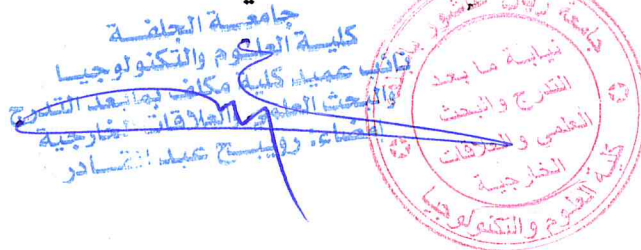 جامعة الجلفة
كلية العلوم والتكنولوجيا
نائب عميد كلية مكلف بمابعد التدرج
والبحث العلمي والعلاقات الخارجية
امضاء: رويبح عبد القادر
جامعة زيان عاشور
نيابة ما بعد
التدرج والبحث
العلمي والعلاقات
الخارجية
كلية العلوم والتكنولوجيا